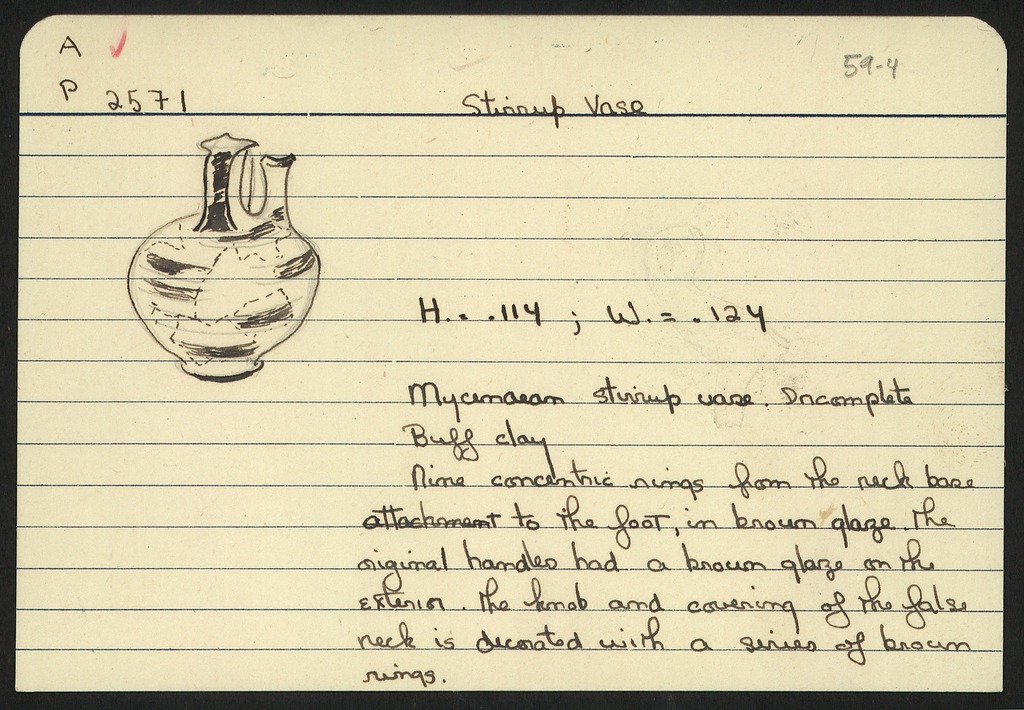 A ✓
59-4
P 2571
Stirrup Vase
H. = .114 ; W. = .124
Mycenaean stirrup vase. Incomplete
Buff clay
Nine concentric rings from the neck base
attachment to the foot, in brown glaze. The
original handles had a brown glaze on the
exterior. The knob and covering of the false
neck is decorated with a series of brown
rings.